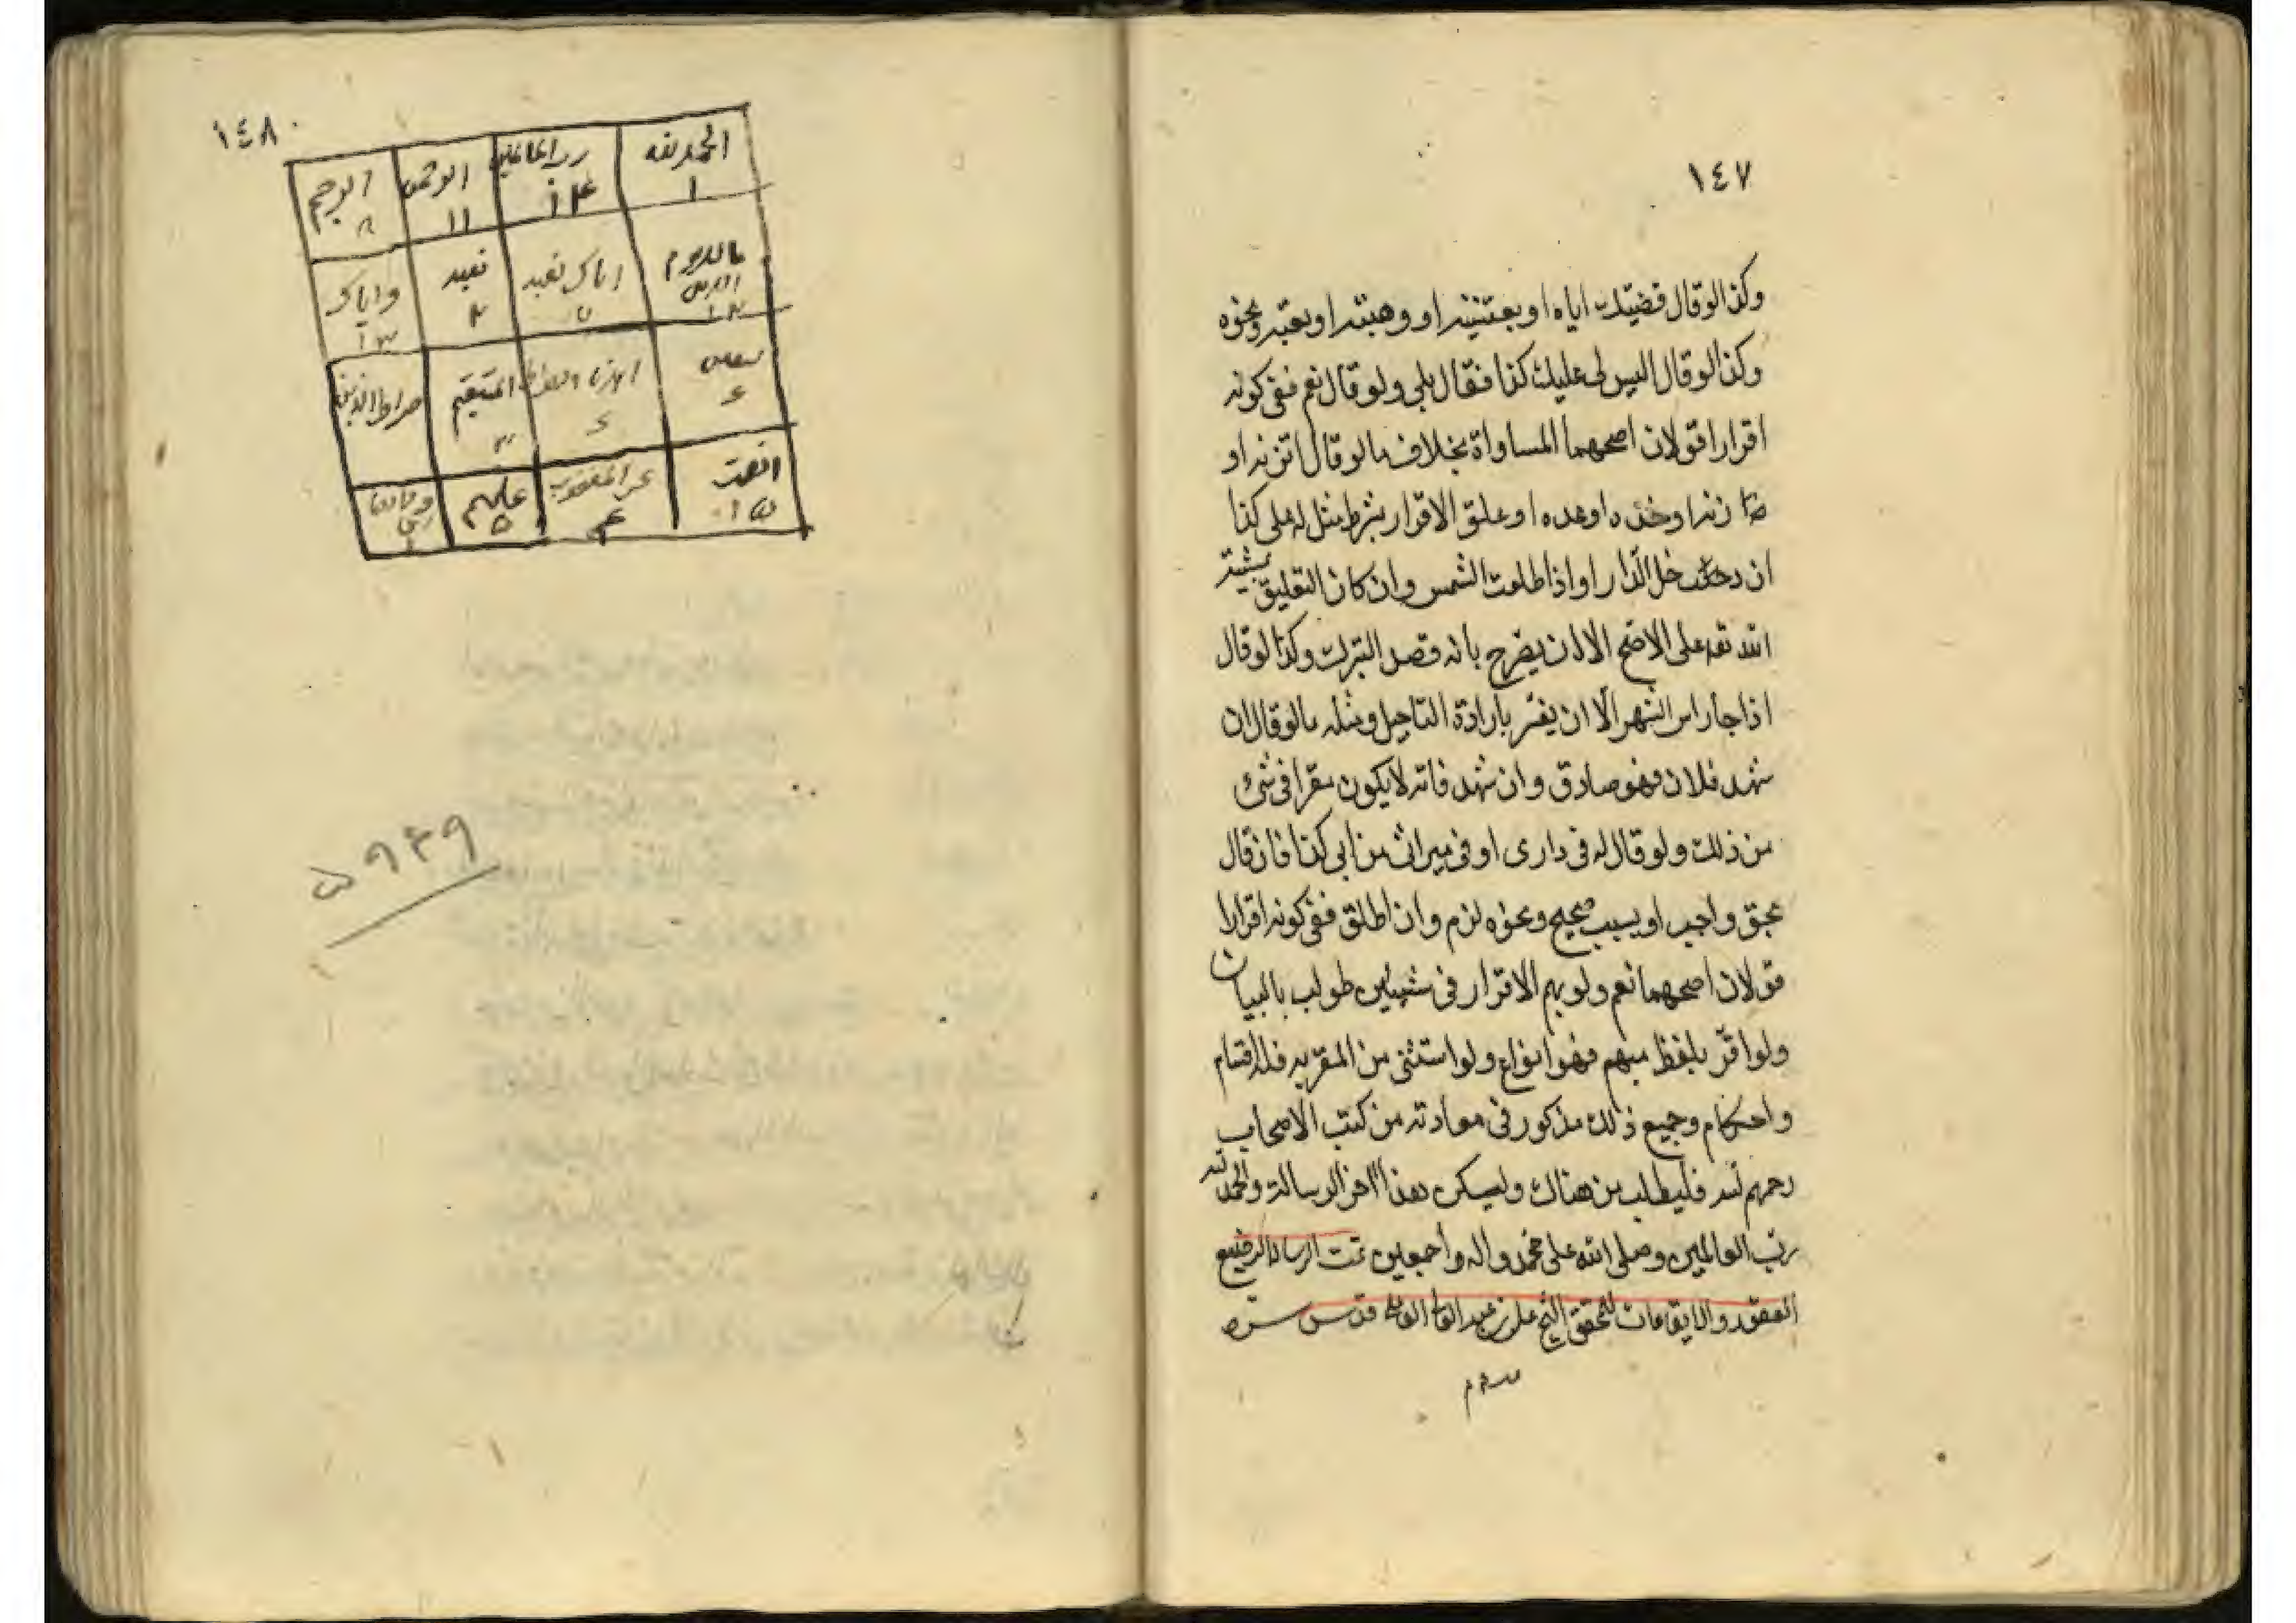 ١٤٧
وكذا لو قال قضيتك اياه او بعتنيه او وهبته او بعته ونحوه
وكذا لو قال اليس لى عليك كذا فقال بلى ولو قال نعم ففى كونه
اقرارا قولان اصحهما المساواة بخلاف ما لو قال اتزنه او
زنه او خذه او عده او علق الاقرار بشرط مثل له على كذا
ان دخل الدار او اذا طلعت الشمس وان كان التعليق بمشية
الله تعه على الاصح الا ان يصرح بانه قصد التبرك وكذا لو قال
اذا جاء راس الشهر الّا ان يفسّر بارادة التاجيل ومثله ما لو قال ان
شهد فلان فهو صادق وان شهد فانه لا يكون مقرا فى شئ
من ذلك ولو قال له فى دارى او فى ميراث من ابى كذا فان قال
بحق واجب او بسبب صحيح ونحوه لزم وان اطلق ففى كونه اقرارا
قولان اصحهما نعم ولو بهم الاقرار فى شيئين طولب بالبيان
ولو اقرّ بلفظ مبهم فهو انواع ولو استثنى من المقرّ به فله اقسام
واحكام وجميع ذلك مذكور فى معادنه من كتب الاصحاب
رحمهم الله فليطلب من هناك وليكن هذا اخر الرسالة والحمد لله
ربّ العالمين وصلى الله على محمّد واله اجمعين تمت الرسالة الصيغ
العقود والايقاعات للمحقق الشيخ على بن عبد العالى قدس سره
١٤٨
الحمد لله رب العالمين الرحمن الرحيم
١ ١٤ ١١ ٨
مالك يوم الدين اياك نعبد نعبد واياك
١٢ ٧ ٢ ١٣
نستعين اهدنا الصراط المستقيم صراط الذين
انعمت غير المغضوب عليهم
١٥ ٤ ٥
٥٩٤٩